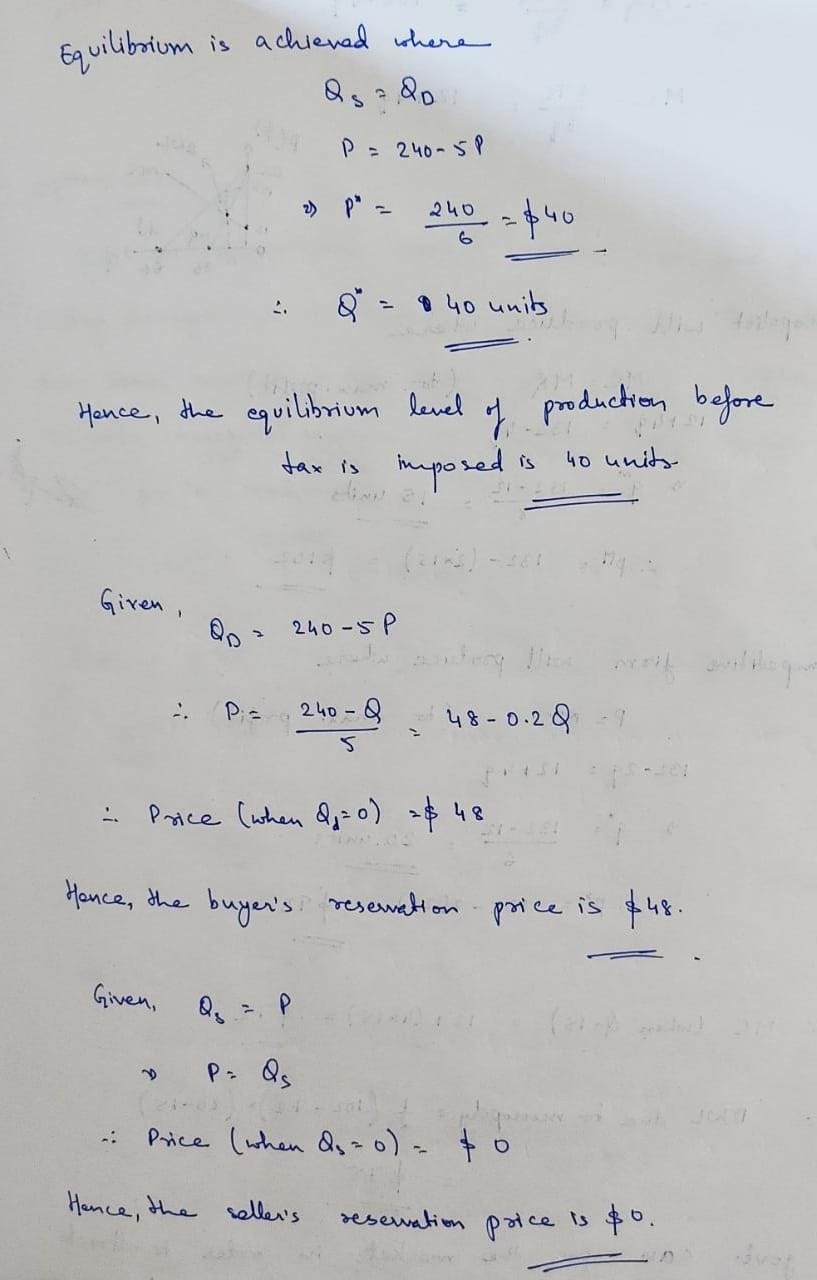 Equilibrium is achieved where
Qs = QD
P = 240 - 5P
⇒ P* = 240/6 = $40
∴ Q* = 40 units
Hence, the equilibrium level of production before
tax is imposed is 40 units
Given,
QD = 240 - 5P
∴ P = (240 - Q)/5 = 48 - 0.2Q
∴ Price (when Qd = 0) = $48
Hence, the buyer's reservation price is $48.
Given, Qs = P
⇒ P = Qs
∴ Price (when Qs = 0) = $0
Hence, the seller's reservation price is $0.